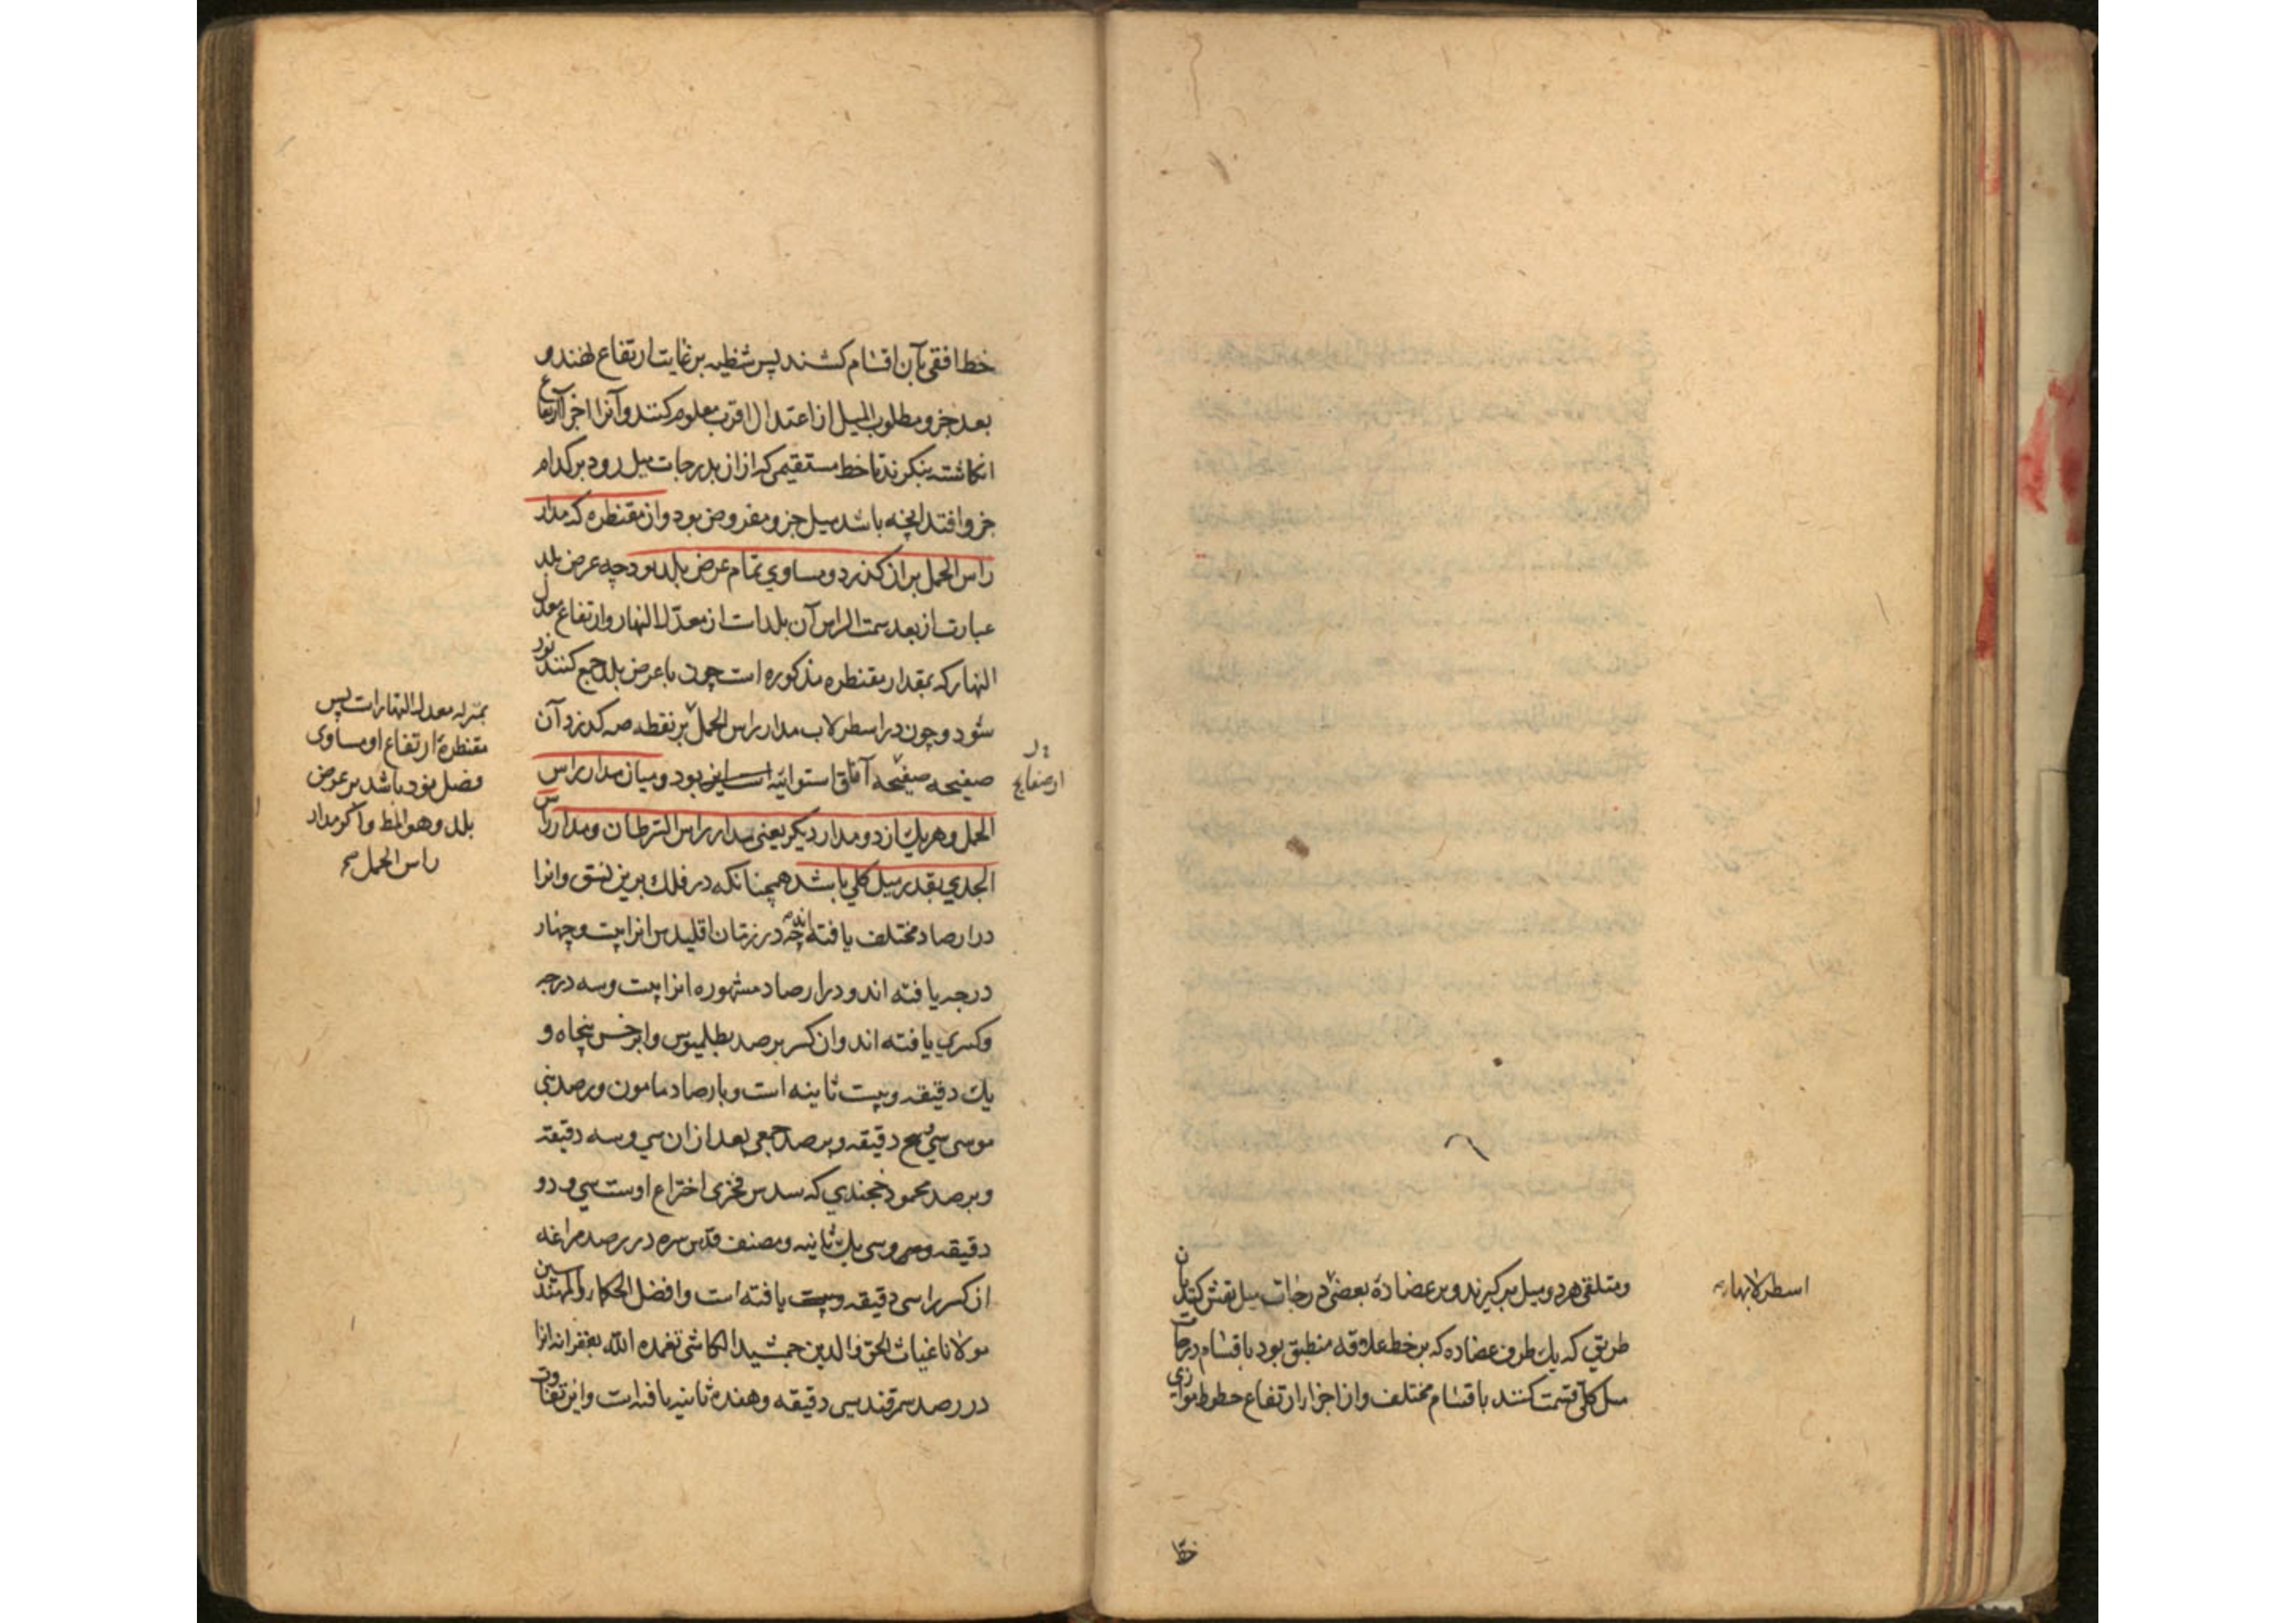 اسطرلابها
ومتلقی هر دو میل برگیرند و بر عضادهٔ بعضی درجات میل نقش کنند بآن
طریق که یک طرف عضاده که بر خط علاقه منطبق بود باقسام درجات
میل کلی قسمت کنند باقسام مختلف و از اجزاء ارتفاع خطوط موازی
خط
خط افقی بآن اقسام کشند پس شظیه بر غایت ارتفاع نهند و
بعد جزو مطلوب المیل از اعتدال اقرب معلوم کنند و آنرا اجزاء ارتفاع
انکاشته بنکرند تا خط مستقیمی که ازان بدرجات میل رود بر کدام
جزو افتد آنچه باشد میل جزو مفروض بود و آن مقنطره که مدار
راس الحمل بران کذرد مساوی تمام عرض بلد بود چه عرض بلد
عبارت از بعد سمت الراس آن بلد است از معدل النهار و ارتفاع معدل
النهار که بمقدار مقنطره مذکوره است چون با عرض بلد جمع کنند نود
شود و چون در اسطرلاب مدار راس الحمل بر نقطه ص کذرد آن
صفیحه صفیحه آفاق استوائیه بود و میان مدار راس
الحمل و هر یک از دو مدار دیکر یعنی مدار راس السرطان و مدار راس
الجدی بقدر میل کلی باشد همچنانکه در فلک برین نسق و آنرا
در ارصاد مختلف یافته اند چه در زمان اقلیدس آنرا بیست و چهار
درجه یافته اند و در ارصاد مشهوره آنرا بیست و سه درجه
و کسری یافته اند و آن کسر برصد بطلمیوس و ابرخس پنجاه و
یک دقیقه و بیست ثانیه است و بارصاد مامون و برصد بنی
موسی سی و پنج دقیقه و برصد جمعی بعد ازان سی و سه دقیقه
و برصد محمود خجندی که سدس فخری اختراع اوست سی و دو
دقیقه و سی یک ثانیه و مصنف قدس سره در رصد مراغه
آن کسر را سی دقیقه یافته است و افضل الحکماء و المهندسین
مولانا غیاث الحق و الدین جمشید الکاشی تغمده الله بغفرانه آنرا
در رصد سمرقند سی دقیقه و هفده ثانیه یافته است و این تفاوت
از صفایح
بمنزله معدل النهار است پس
مقنطرهٔ ارتفاع او مساوی
فضل نود باشد بر عرض
بلد و هو المط و اکر مدار
راس الحمل صح